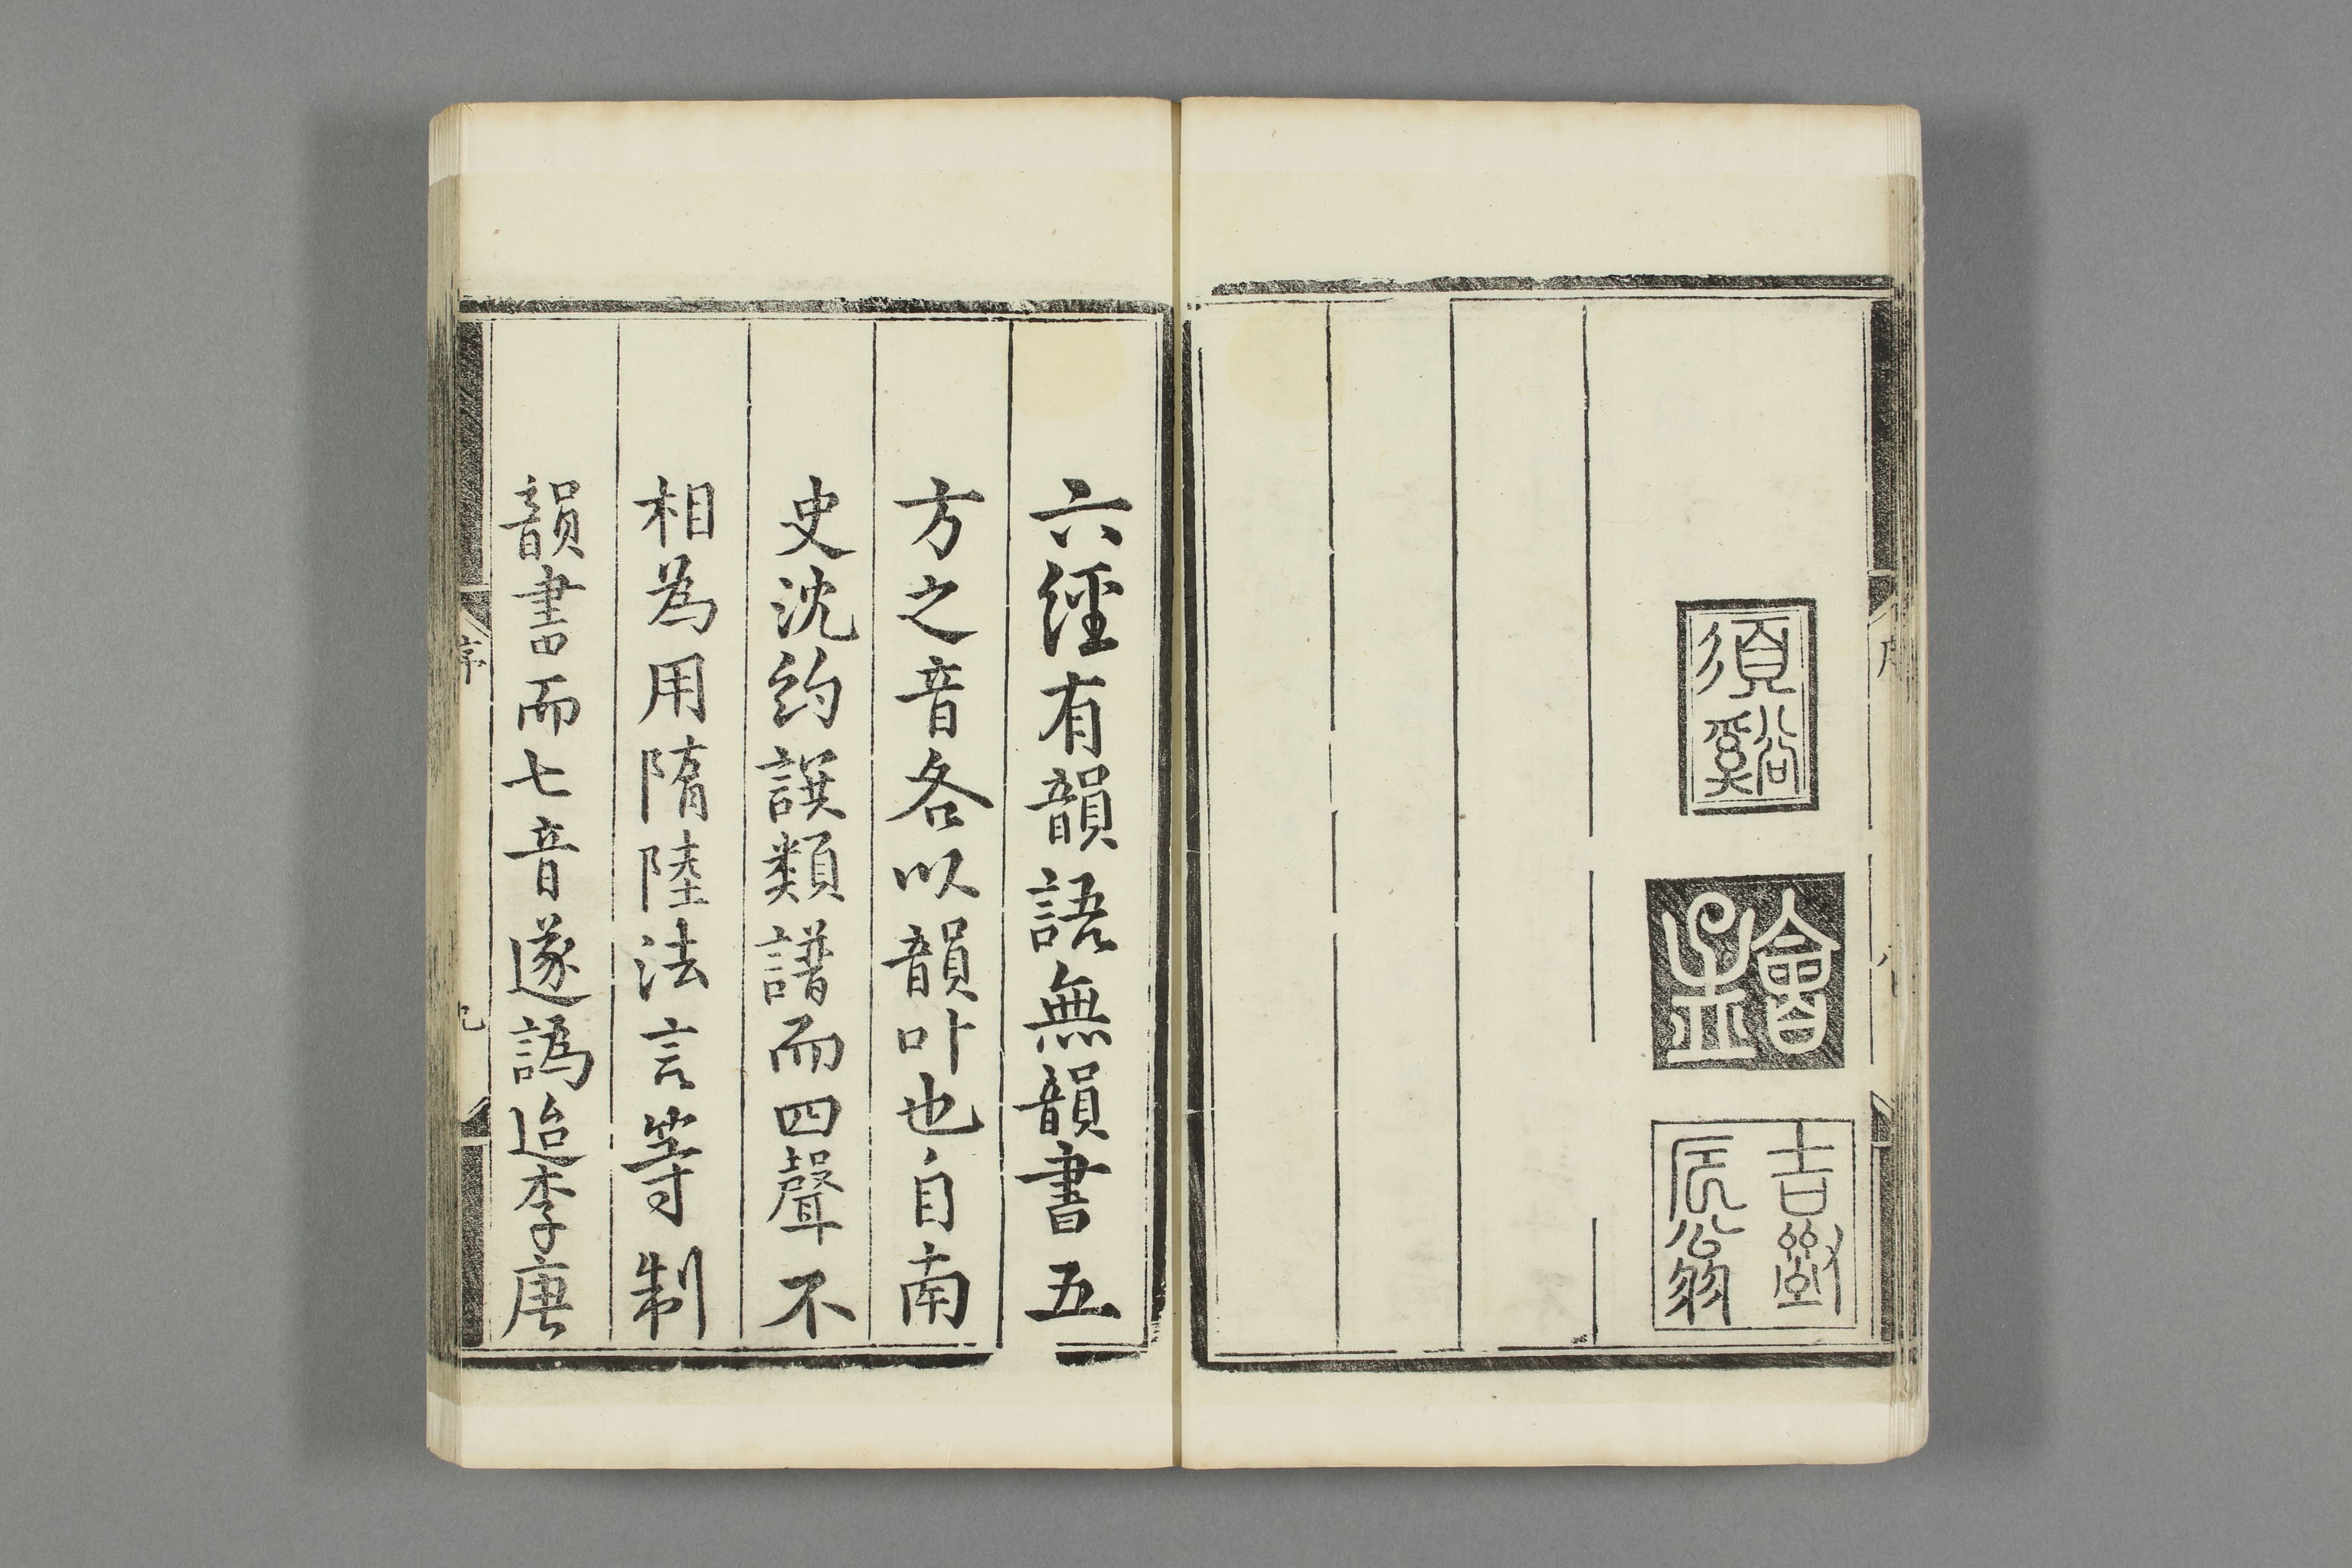 須谿
會孟
辰翁
六經有韻語無韻書五
方之音各以韻叶也自南
史沈約譔類譜而四聲不
相為用隋陸法言等制
韻書而七音遂譌迨李唐
序
九